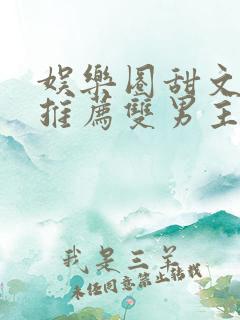 娱樂圈甜文
推薦雙男主
我是三羊
未經同意禁止轉載